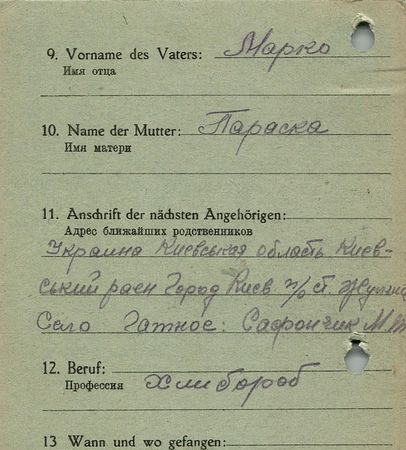 9. Vorname des Vaters: Марко
Имя отца
10. Name der Mutter: Параска
Имя матери
11. Anschrift der nächsten Angehörigen:
Адрес ближайших родственников
Украина Киевськая область Киев-
ський раен Город Киев п/о ст.
Село Гатное: Сафончик М
12. Beruf:
Профессия Хлибороб
13 Wann und wo gefangen: